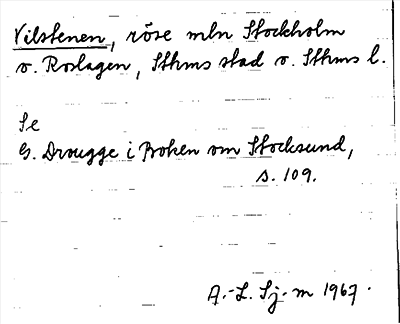 Vilstenen, röse mln Stockholm
o. Roslagen, Sthms stad o. Sthms l.
Se
G. Drougge i Boken om Stocksund,
s. 109.
A.-L. Sj-m 1967.